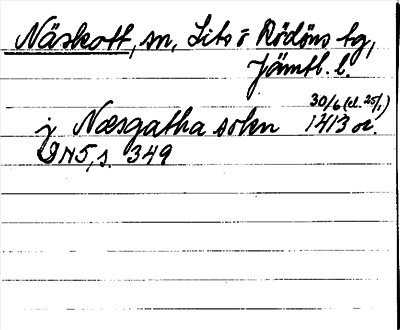 Näskott, sn, Lits o Rödöns tg,
Jämtl. l.
30/6 (el. 25/1)
j Næsgatha sokn 1413 or.
DN5, s. 349